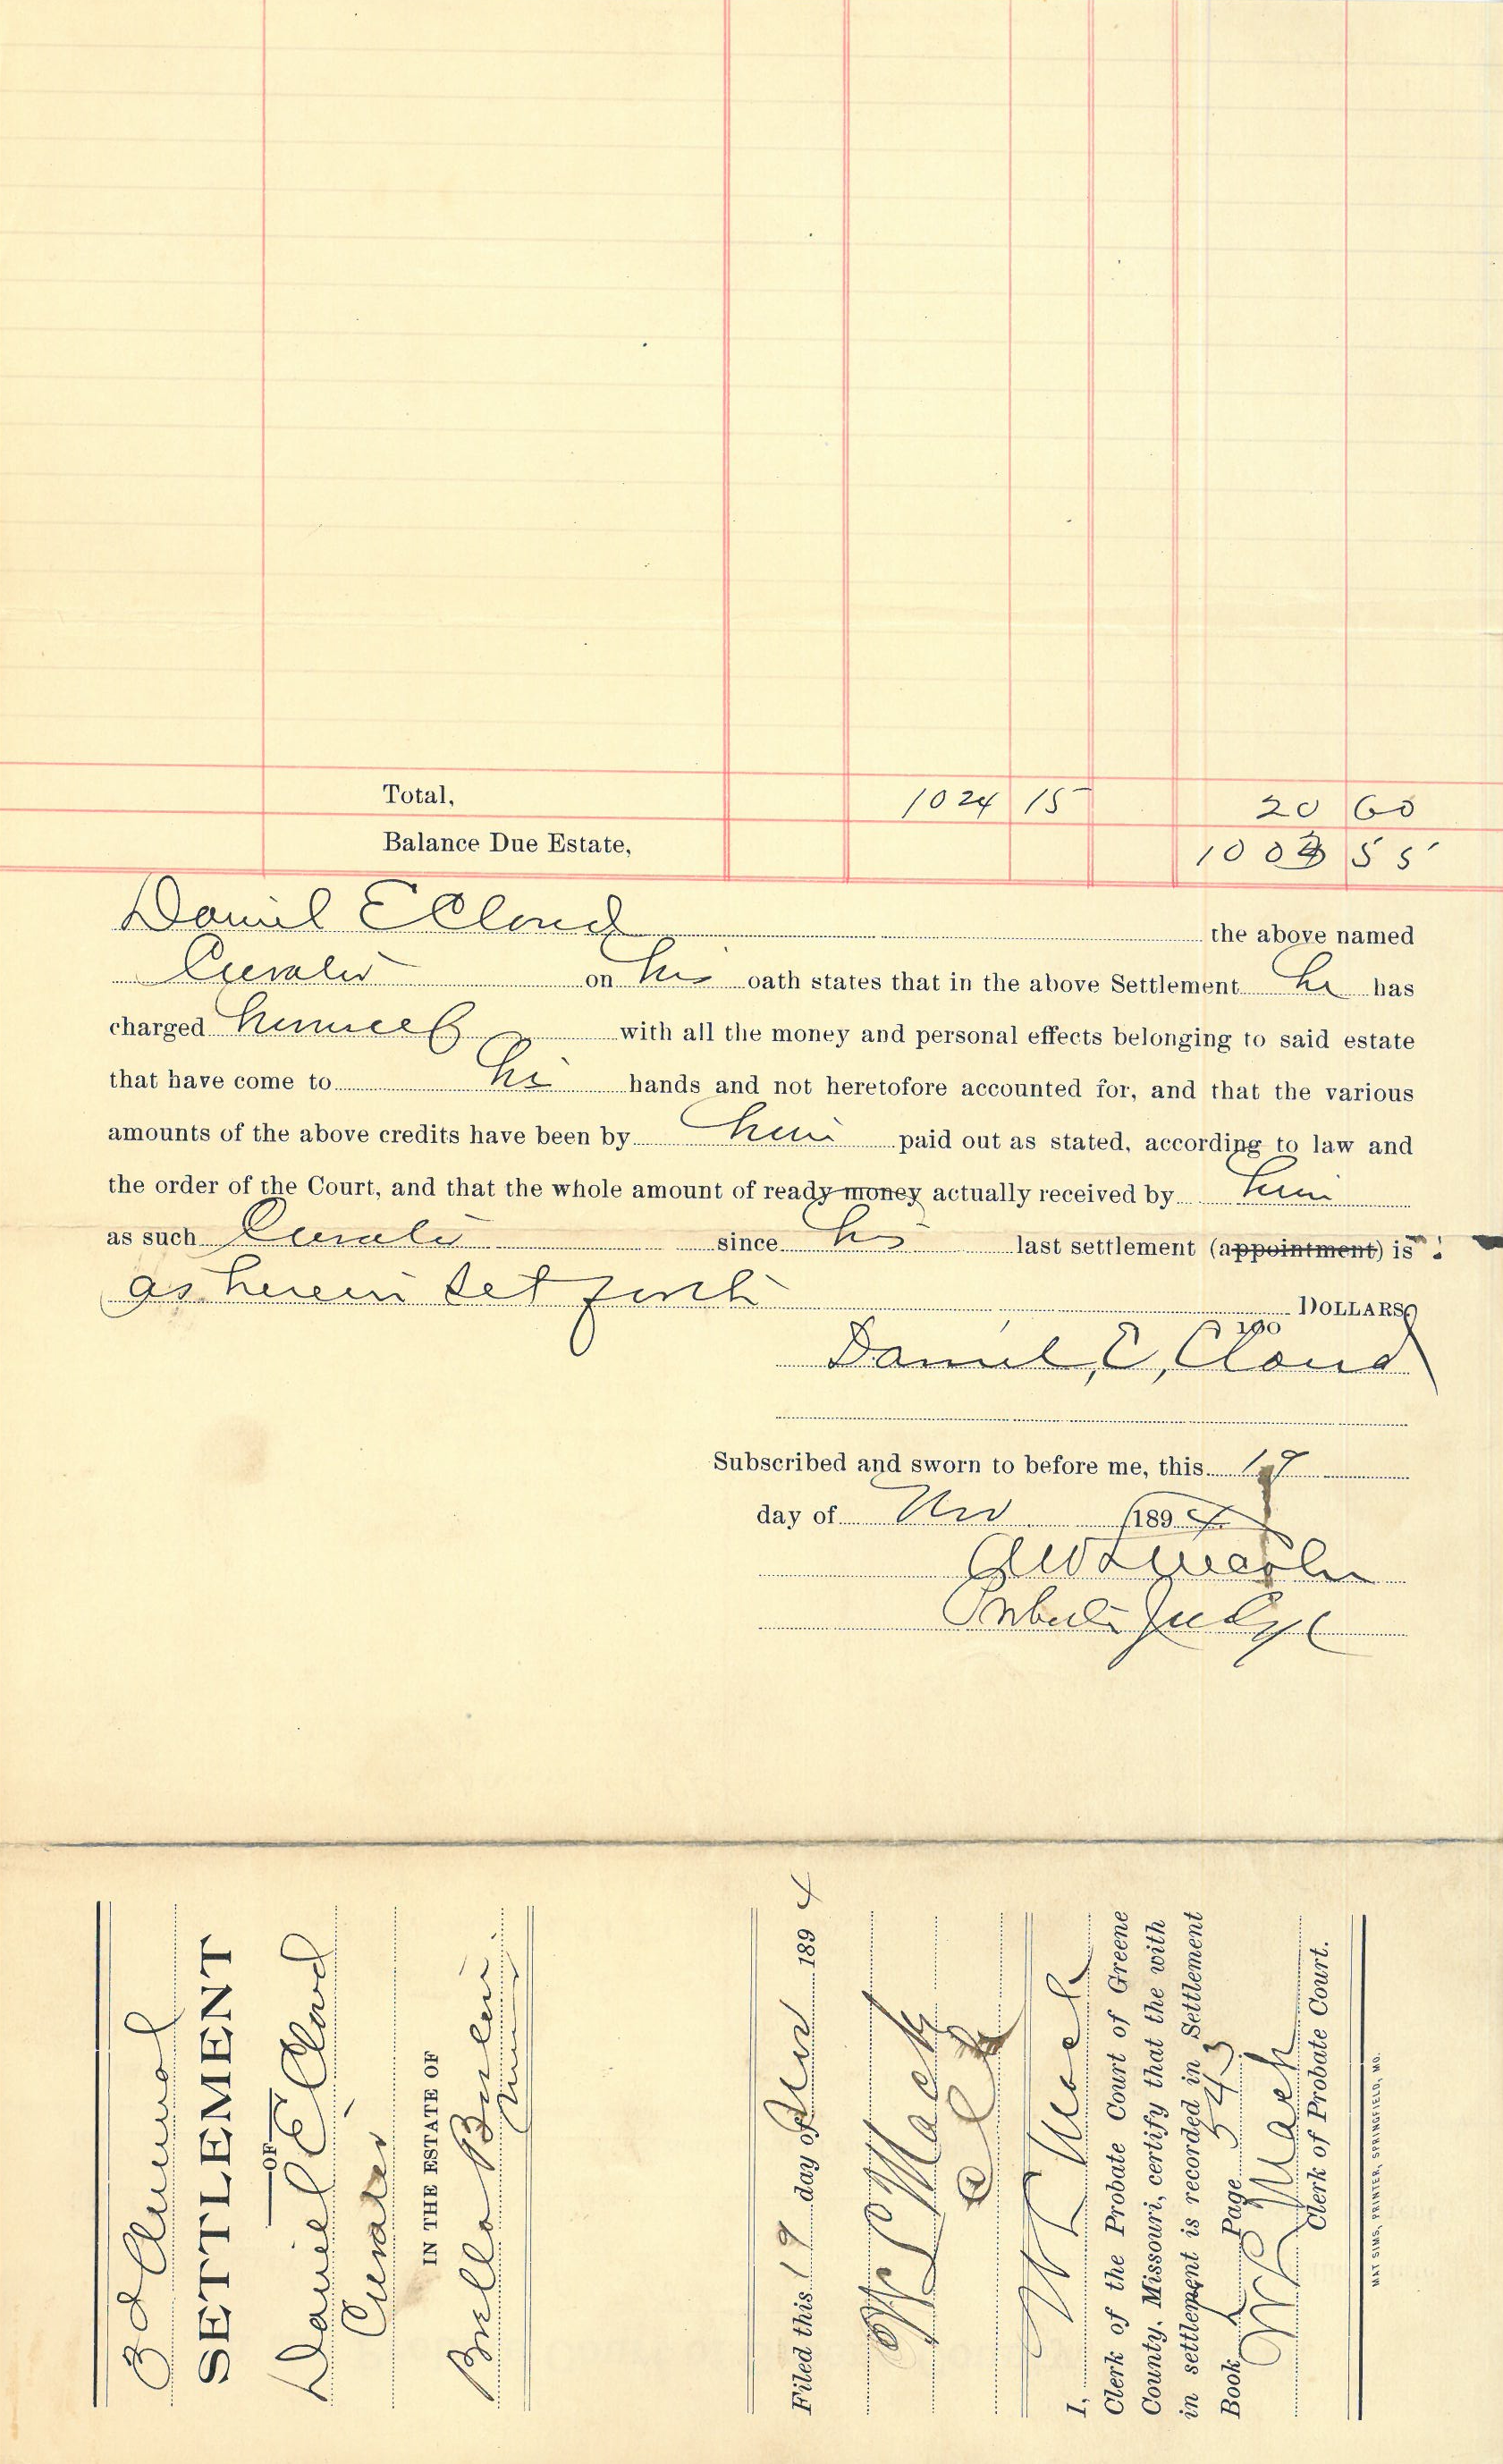 Total, 1024 15 20 60
Balance Due Estate, 1003 55
Daniel E Cloud the above named
Curator on his oath states that in the above Settlement he has
charged himself with all the money and personal effects belonging to said estate
that have come to his hands and not heretofore accounted for, and that the various
amounts of the above credits have been by him paid out as stated, according to law and
the order of the Court, and that the whole amount of ready money actually received by him
as such Curator since his last settlement (appointment) is
as herein set forth DOLLARS,
100
Daniel, E, Cloud
Subscribed and sworn to before me, this 19
day of Nov 1894
GW Lincoln
Probate Judge
3d Annual
SETTLEMENT
OF
Daniel E Cloud
Curator
IN THE ESTATE OF
Minor
Filed this 19 day of Nov 1894
W L Mack
Clk
I, W L Mack
Clerk of the Probate Court of Greene
County, Missouri, certify that the with
in settlement is recorded in Settlement
Book Page 543
W L Mack
Clerk of Probate Court.
MAT SIMS, PRINTER, SPRINGFIELD, MO.